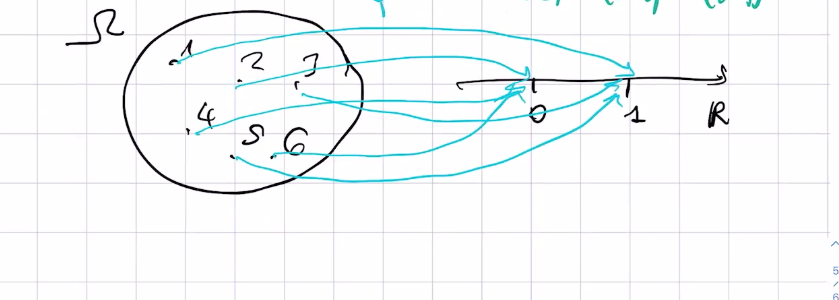 Ω
1
2 3
4 5 6
0 1 R